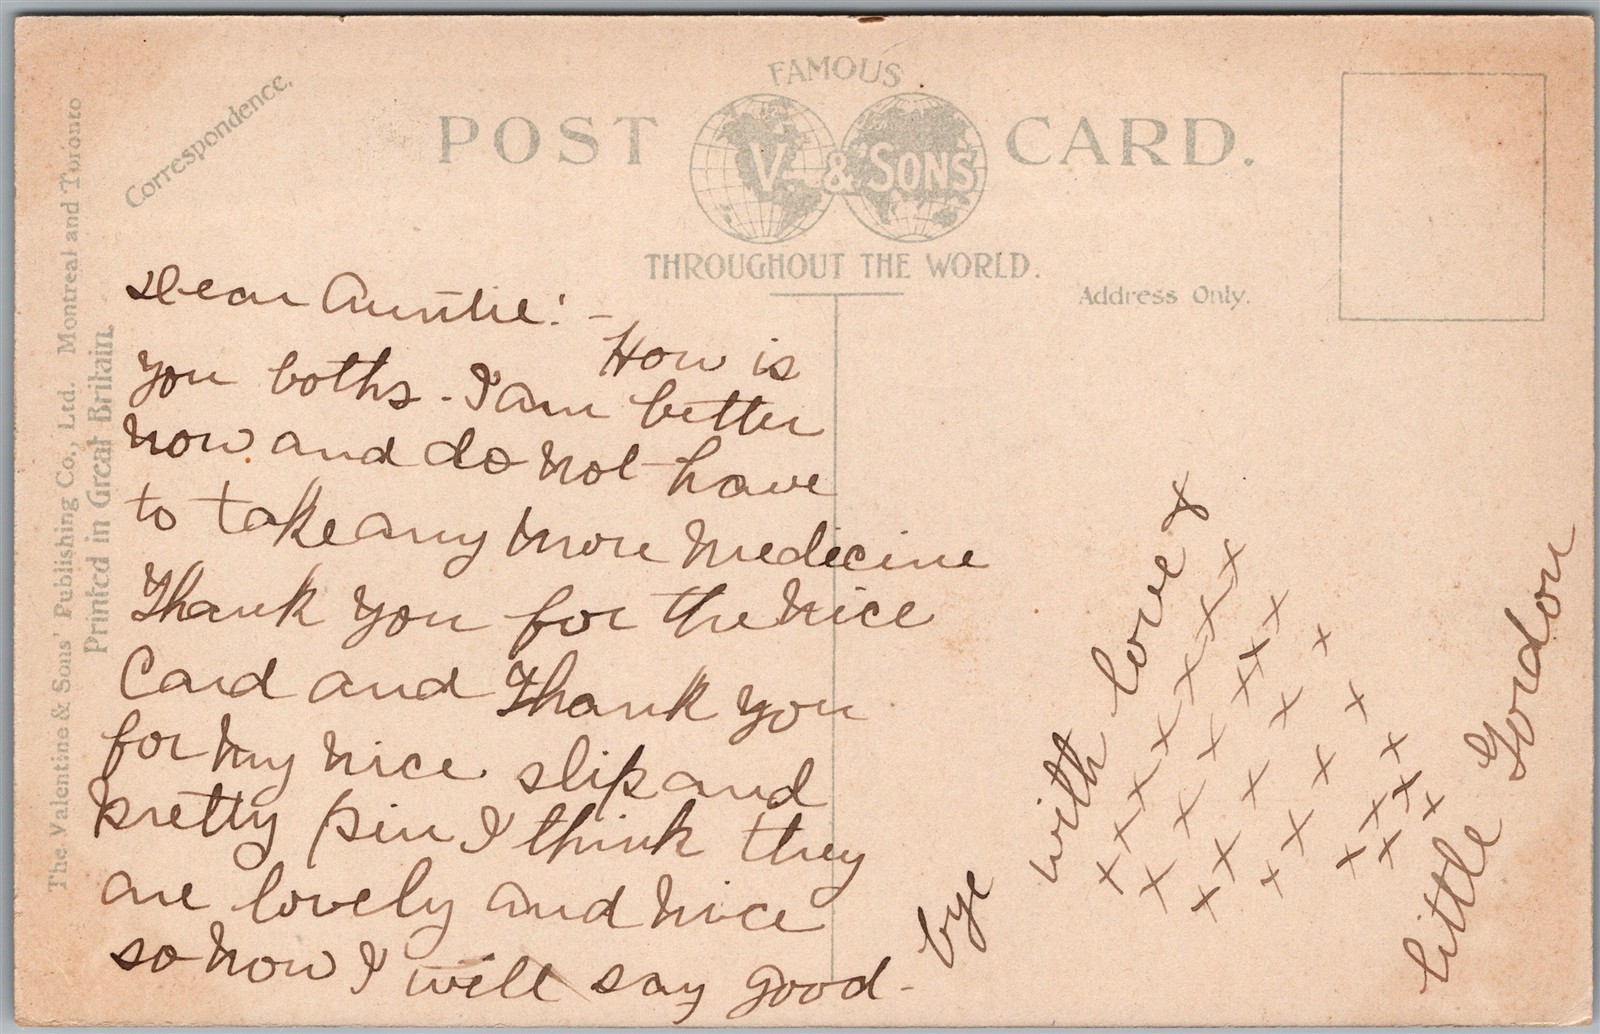 FAMOUS
POST V. & SONS' CARD.
THROUGHOUT THE WORLD.
Correspondence.
Address Only.
The Valentine & Sons' Publishing Co., Ltd. Montreal and Toronto
Printed in Great Britain.
Dear Auntie! -
How is
you boths. I am better
now and do not have
to take any more medicine
Thank you for the nice
Card and Thank you
for my nice slip and
pretty pin I think they
are lovely and nice
so now I will say good-
bye
with love x
x x x x x x x x x x x x x x x x x x x x x x x x x x x x x x x x
little Gordon